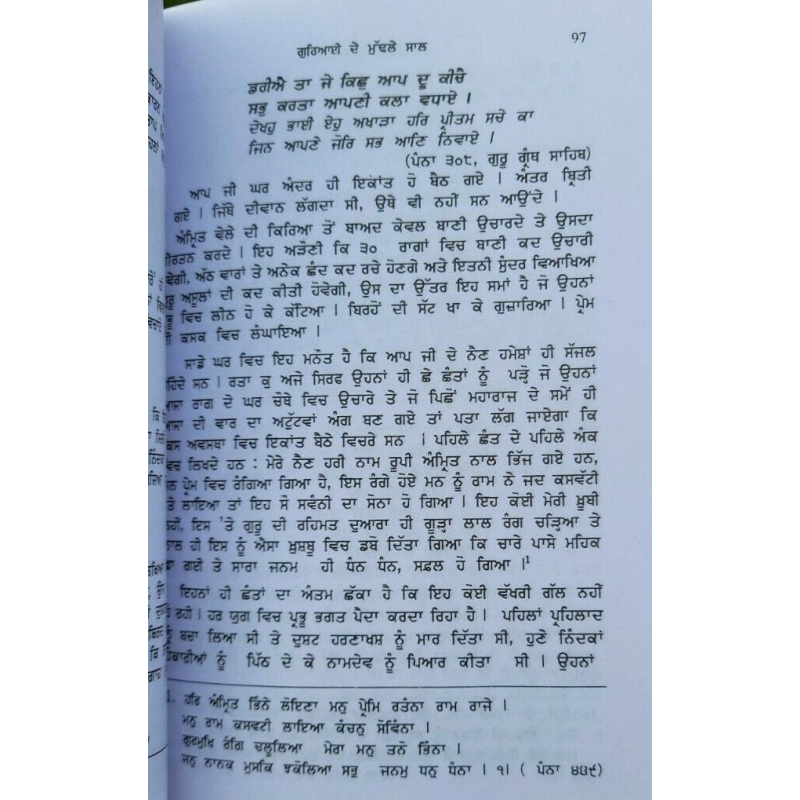 ਗੁਰਿਆਈ ਦੇ ਮੁੱਢਲੇ ਸਾਲ
97
ਡਰੀਐ ਤਾ ਜੇ ਕਿਛੁ ਆਪ ਦੂ ਕੀਚੈ
ਸਭੁ ਕਰਤਾ ਆਪਣੀ ਕਲਾ ਵਧਾਏ ।
ਦੇਖਹੁ ਭਾਈ ਏਹੁ ਅਖਾੜਾ ਹਰਿ ਪ੍ਰੀਤਮ ਸਚੇ ਕਾ
ਜਿਨ ਆਪਣੇ ਜੋਰਿ ਸਭ ਆਣਿ ਨਿਵਾਏ ।
(ਪੰਨਾ ੩੦੮, ਗੁਰੂ ਗ੍ਰੰਥ ਸਾਹਿਬ)
ਆਪ ਜੀ ਘਰ ਅੰਦਰ ਹੀ ਇਕਾਂਤ ਹੋ ਬੈਠ ਗਏ । ਅੰਤਰ ਬ੍ਰਿਤੀ
ਗਏ । ਜਿੱਥੇ ਦੀਵਾਨ ਲੱਗਦਾ ਸੀ, ਉਥੇ ਵੀ ਨਹੀਂ ਸਨ ਆਉਂਦੇ ।
ਅੰਮ੍ਰਿਤ ਵੇਲੇ ਦੀ ਕਿਰਿਆ ਤੋਂ ਬਾਅਦ ਕੇਵਲ ਬਾਣੀ ਉਚਾਰਦੇ ਤੇ ਉਸਦਾ
ਕੀਰਤਨ ਕਰਦੇ । ਇਹ ਅੜੌਣੀ ਕਿ ੩੦ ਰਾਗਾਂ ਵਿਚ ਬਾਣੀ ਕਦ ਉਚਾਰੀ
ਹੋਵੇਗੀ, ਅੱਠ ਵਾਰਾਂ ਤੇ ਅਨੇਕ ਛੰਦ ਕਦ ਰਚੇ ਹੋਣਗੇ ਅਤੇ ਇਤਨੀ ਸੁੰਦਰ ਵਿਆਖਿਆ
ਗੁਰੂ ਅਸੂਲਾਂ ਦੀ ਕਦ ਕੀਤੀ ਹੋਵੇਗੀ, ਉਸ ਦਾ ਉੱਤਰ ਇਹ ਸਮਾਂ ਹੈ ਜੋ ਉਹਨਾਂ
ਵਿਚ ਲੀਨ ਹੋ ਕੇ ਕੱਟਿਆ । ਬਿਰਹੋਂ ਦੀ ਸੱਟ ਖਾ ਕੇ ਗੁਜ਼ਾਰਿਆ । ਪ੍ਰੇਮ
ਦੀ ਕਸਕ ਵਿਚ ਲੰਘਾਇਆ ।
ਸਾਡੇ ਘਰ ਵਿਚ ਇਹ ਮਨੌਤ ਹੈ ਕਿ ਆਪ ਜੀ ਦੇ ਨੈਣ ਹਮੇਸ਼ਾਂ ਹੀ ਸੱਜਲ
ਰਹਿੰਦੇ ਸਨ । ਰਤਾ ਕੁ ਅਜੇ ਸਿਰਫ ਉਹਨਾਂ ਹੀ ਛੇ ਛੰਤਾਂ ਨੂੰ ਪੜ੍ਹੋ ਜੋ ਉਹਨਾਂ
ਆਸਾ ਰਾਗ ਦੇ ਘਰ ਚੋਥੇ ਵਿਚ ਉਚਾਰੇ ਤੇ ਜੋ ਪਿਛੋਂ ਮਹਾਰਾਜ ਦੇ ਸਮੇਂ ਹੀ
ਆਸਾ ਦੀ ਵਾਰ ਦਾ ਅਟੁੱਟਵਾਂ ਅੰਗ ਬਣ ਗਏ ਤਾਂ ਪਤਾ ਲੱਗ ਜਾਏਗਾ ਕਿ
ਕਿਸ ਅਵਸਥਾ ਵਿਚ ਇਕਾਂਤ ਬੈਠੇ ਵਿਚਰੇ ਸਨ । ਪਹਿਲੇ ਛੰਤ ਦੇ ਪਹਿਲੇ ਅੰਕ
ਵਿਚ ਲਿਖਦੇ ਹਨ : ਮੇਰੇ ਨੈਣ ਹਰੀ ਨਾਮ ਰੂਪੀ ਅੰਮ੍ਰਿਤ ਨਾਲ ਭਿੱਜ ਗਏ ਹਨ,
ਮਨ ਪ੍ਰੇਮ ਵਿਚ ਰੰਗਿਆ ਗਿਆ ਹੈ, ਇਸ ਰੰਗੇ ਹੋਏ ਮਨ ਨੂੰ ਰਾਮ ਨੇ ਜਦ ਕਸਵੱਟੀ
ਤੇ ਲਾਇਆ ਤਾਂ ਇਹ ਸੋ ਸਵੰਨੀ ਦਾ ਸੋਨਾ ਹੋ ਗਿਆ । ਇਹ ਕੋਈ ਮੇਰੀ ਖ਼ੂਬੀ
ਨਹੀਂ, ਇਸ 'ਤੇ ਗੁਰੂ ਦੀ ਰਹਿਮਤ ਦੁਆਰਾ ਹੀ ਗੂੜ੍ਹਾ ਲਾਲ ਰੰਗ ਚੜ੍ਹਿਆ ਤੇ
ਨਾਲ ਹੀ ਇਸ ਨੂੰ ਐਸਾ ਖ਼ੁਸ਼ਬੂ ਵਿਚ ਡਬੋ ਦਿੱਤਾ ਗਿਆ ਕਿ ਚਾਰੇ ਪਾਸੇ ਮਹਿਕ
ਛਾ ਗਈ ਤੇ ਸਾਰਾ ਜਨਮ ਹੀ ਧੰਨ ਧੰਨ, ਸਫ਼ਲ ਹੋ ਗਿਆ ।¹
ਇਹਨਾਂ ਹੀ ਛੰਤਾਂ ਦਾ ਅੰਤਮ ਛੱਕਾ ਹੈ ਕਿ ਇਹ ਕੋਈ ਵੱਖਰੀ ਗੱਲ ਨਹੀਂ
ਹੋ ਰਹੀ । ਹਰ ਯੁਗ ਵਿਚ ਪ੍ਰਭੂ ਭਗਤ ਪੈਦਾ ਕਰਦਾ ਰਿਹਾ ਹੈ । ਪਹਿਲਾਂ ਪ੍ਰਹਿਲਾਦ
ਨੂੰ ਬਚਾ ਲਿਆ ਸੀ ਤੇ ਦੁਸ਼ਟ ਹਰਣਾਖਸ਼ ਨੂੰ ਮਾਰ ਦਿੱਤਾ ਸੀ, ਹੁਣੇ ਨਿੰਦਕਾਂ
ਹੰਕਾਰੀਆਂ ਨੂੰ ਪਿੱਠ ਦੇ ਕੇ ਨਾਮਦੇਵ ਨੂੰ ਪਿਆਰ ਕੀਤਾ ਸੀ । ਉਹਨਾਂ
1. ਹਰਿ ਅੰਮ੍ਰਿਤ ਭਿੰਨੇ ਲੋਇਣਾ ਮਨੁ ਪ੍ਰੇਮਿ ਰਤੰਨਾ ਰਾਮ ਰਾਜੇ ।
ਮਨੁ ਰਾਮ ਕਸਵਟੀ ਲਾਇਆ ਕੰਚਨੁ ਸੋਵਿੰਨਾ ।
ਗੁਰਮੁਖਿ ਰੰਗਿ ਚਲੂਲਿਆ ਮੇਰਾ ਮਨੁ ਤਨੋ ਭਿੰਨਾ ।
ਜਨੁ ਨਾਨਕ ਮੁਸਕਿ ਝਕੋਲਿਆ ਸਭੁ ਜਨਮੁ ਧਨੁ ਧੰਨਾ । ੧। ( ਪੰਨਾ ੪੪੯)